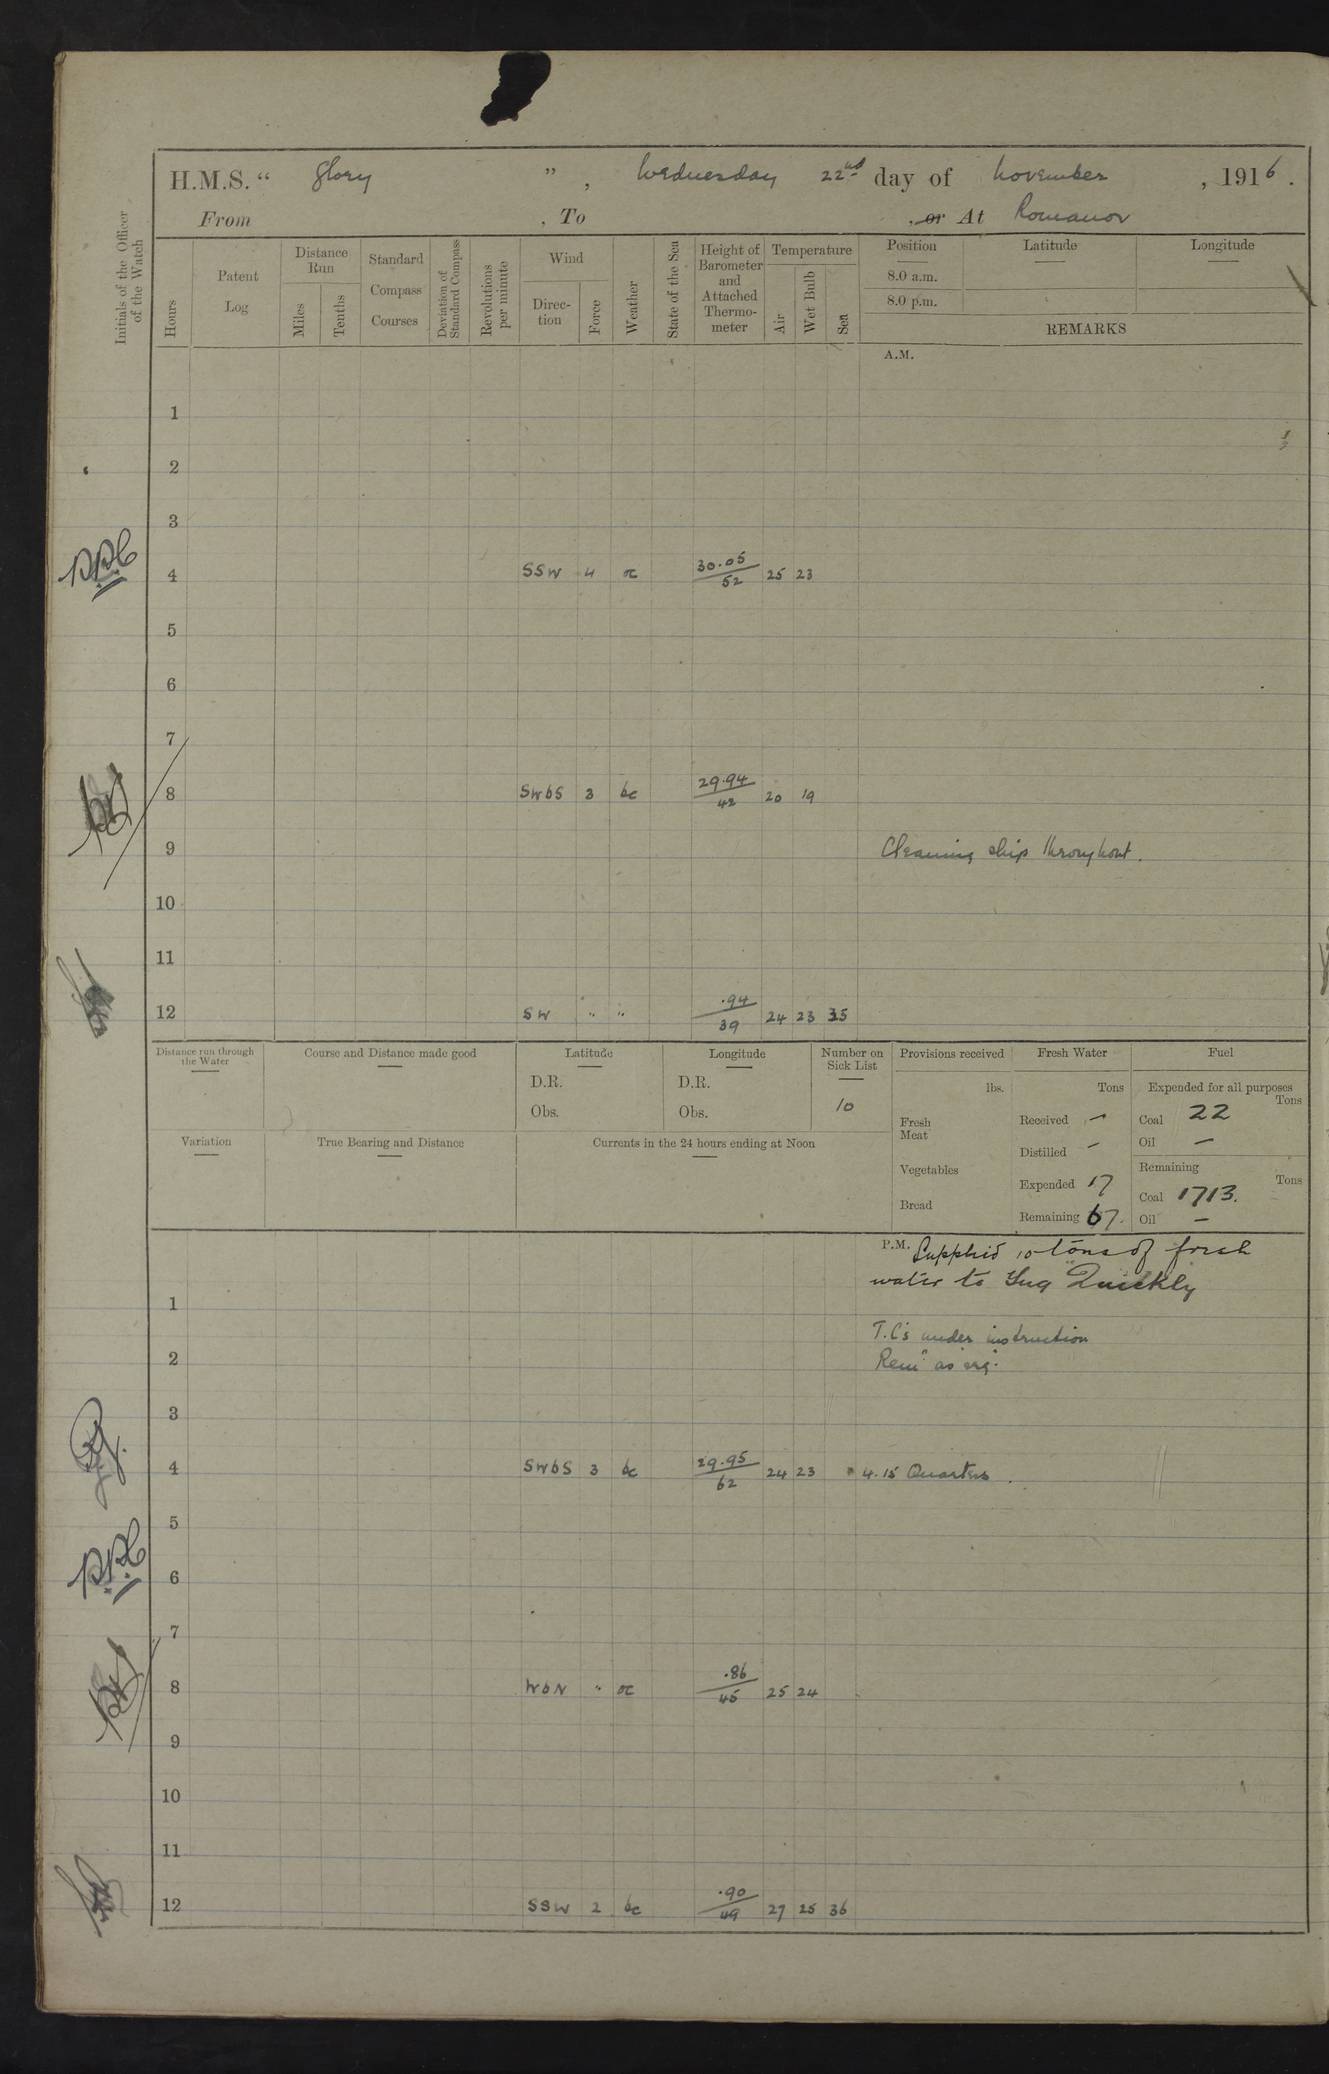 H.M.S. “ Glory ” , Wednesday 22nd day of November , 1916 .
From , To , or At Romanov
Initials of the Officer of the Watch
Hours
Patent Log
Distance Run
Miles
Tenths
Standard Compass Courses
Deviation of Standard Compass
Revolutions per minute
Wind
Direc-tion
Force
Weather
State of the Sea
Height of Barometer and Attached Thermo-meter
Temperature
Air
Wet Bulb
Sea
Position Latitude Longitude
8.0 a.m.
8.0 p.m.
REMARKS
A.M.
1
2
3
4 SSW 4 oc 30.05/52 25 23
5
6
7
8 SWbS 3 bc 29.94/42 20 19
9 Cleaning ship throughout.
10
11
12 SW " " .94/39 24 23 35
Distance run through the Water
Course and Distance made good
Latitude
D.R.
Obs.
Longitude
D.R.
Obs.
Number on Sick List
10
Variation
True Bearing and Distance
Currents in the 24 hours ending at Noon
Provisions received
lbs.
Fresh Meat
Vegetables
Bread
Fresh Water
Tons
Received –
Distilled –
Expended 17
Remaining 67.
Fuel
Expended for all purposes
Tons
Coal 22
Oil –
Remaining
Tons
Coal 1713.
Oil –
P.M. Supplied 10 tons of fresh
water to Tug "Quickly
1
T.C's under instruction
2 Rem" as req.
3
4 SWbS 3 bc 29.95/62 24 23 4.15 Quarters .
5
6
7
8 WbN " oc .86/45 25 24
9
10
11
12 SSW 2 bc .90/49 27 25 36